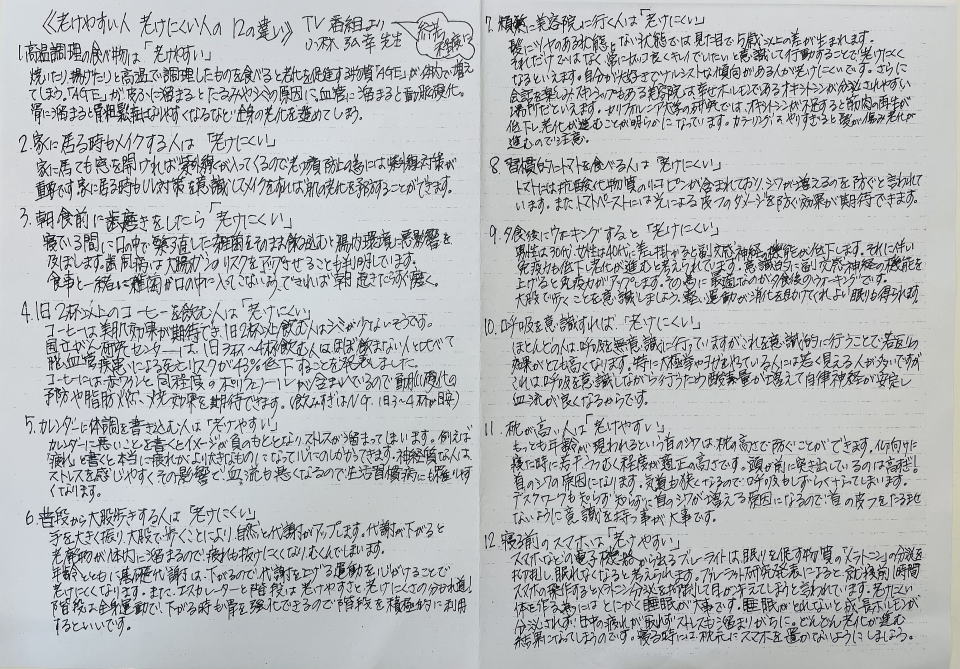 《老けやすい人 老けにくい人の12の違い》 TV番組より
小林 弘幸 先生
1.高温調理の食べ物は「老けやすい」
焼いたり揚げたりと高温で調理したものを食べると老化を促進する物質「AGE」が体内で増え
てしまう。「AGE」が皮ふに溜まるとたるみやシミの原因に、血管に溜まると動脈硬化。
骨に溜まると骨粗鬆症になりやすくなるなど全身の老化を進めてしまう。
2.家に居る時もメイクする人は「老けにくい」
家に居ても窓を開ければ紫外線が入ってくるので老け顔防止の為には紫外線対策が
重要です家に居る時もUV対策を意識してメイクをすれば肌の老化を予防することができます。
3.朝食前に歯磨きをしたら「老けにくい」
寝ている間に口の中で繁殖した雑菌をそのまま飲み込むと腸内環境に悪影響を
及ぼします。歯周病は大腸がんのリスクをアップさせることも判明しています。
食事と一緒に雑菌が口の中に入らないようできれば朝起きたら歯を磨く。
4.1日2杯以上のコーヒーを飲む人は「老けにくい」
コーヒーは美肌効果が期待でき1日2杯以上飲む人はシミが少ないそうです。
国立がん研究センターは、1日3杯〜4杯飲む人はほぼ飲まない人と比べて
脳血管疾患による死亡リスクが43%低下することを発表しました。
コーヒーには赤ワインと同程度のポリフェノールが含まれているので動脈硬化の
予防や脂肪燃焼効果を期待できます。(飲み過ぎはNG. 1日3〜4杯が目安)
5.カレンダーに体調を書き込む人は「老けやすい」
カレンダーに悪いことを書くとイメージが負のもととなりストレスが溜まってしまいます。例えば
「疲れ」と書くと本当に疲れがより大きなものになって心にのしかかってきます。神経質な人は
ストレスを感じやすくその影響で血流も悪くなるので生活習慣病にも罹りやす
くなります。
6.普段から大股歩きする人は「老けにくい」
手を大きく振り大股で歩くことにより自然と代謝がアップします。代謝が下がると
老廃物が体内に溜まるので疲れも抜けにくくなりむくんでしまいます。
年齢とともに基礎代謝は下がるので代謝を上げる運動を心がけることで
老けにくくなります。また、エスカレーターと階段は老けやすさと老けにくさの分かれ道!
階段は全身運動で、下がる時も骨を強化できるので階段を積極的に利用
するといいです。
7.頻繁に美容院に行く人は「老けにくい」
髪にツヤのある状態とない状態では見た目で5歳以上の差が生まれます。
それだけではなく常にかっこよくキレイでいたいと意識して行動することで老けにくく
なるといえます。自分が好きでナルシストな傾向がある人が老けにくいです。さらに
会話を楽しみスキンシップもある美容院は幸せホルモンであるオキシトシンが分泌されやすい
場所だといえます。カリフォルニア大学の研究では、オキシトシンが不足すると筋肉の再生が
低下し老化が進むことが明らかになっています。カラーリングはやりすぎると髪が傷み老化が
進むので注意。
8.習慣的にトマトを食べる人は「老けにくい」
トマトには抗酸化物質のリコピンが含まれており、シワが増えるのを防ぐと言われて
います。またトマトペーストには光による皮フのダメージを防ぐ効果が期待できます。
9.夕食後にウォーキングすると「老けにくい」
男性は30代、女性は40代に差し掛かると副交感神経の機能が低下します。それに伴い
免疫力も低下し老化が進むと考えられています。意識的に副交感神経の機能を
上げると免疫力がアップします。その為に最適なのが夕食後のウォーキングです。
大股で歩くことを意識しましょう。軽い運動が消化を助けてくれよい眠りも得られます
10.呼吸を意識すれば「老けにくい」
ほとんどの人は呼吸を無意識に行っていますがこれを意識的に行うことで若返り
効果がとても高くなります。特に太極拳やヨガをされている人には若く見える人が多いですが
これは呼吸を意識しながら行うため酸素量が増えて自律神経が安定し
血流が良くなるからです。
11.枕が高い人は「老けやすい」
もっとも年齢が現われるという首のシワは枕の高さで防ぐことができます。仰向けに
寝た時に若干うつむく程度が適正の高さです。頭が前に突き出しているのは高すぎ!
首のシワの原因になります。気道も狭くなるので呼吸もしずらくなってしまいます。
デスクワークも知らず知らずに首のシワが増える原因になるので首の皮フをたるませ
ないように意識を持つ事が大事です。
12.寝る前のスマホは「老けやすい」
スマホなどの電子機器から出るブルーライトは、眠りを促す物質の「メラトニン」の分泌を
抑制し眠れなくなると考えられます。ブルーライト研究発表によると、就寝前1時間
スマホの操作するとメラトニン分泌を抑制して目がさえてしまうと言われます。老けにくい
体を作る為にはとにかく睡眠が大事です。睡眠がとれないと成長ホルモンが
分泌されず日中の疲れが取れずストレスも溜まりがちに。どんどん老化が進む
結果になってしまうのです。寝る時には枕元にスマホを置かないようにしましょう。